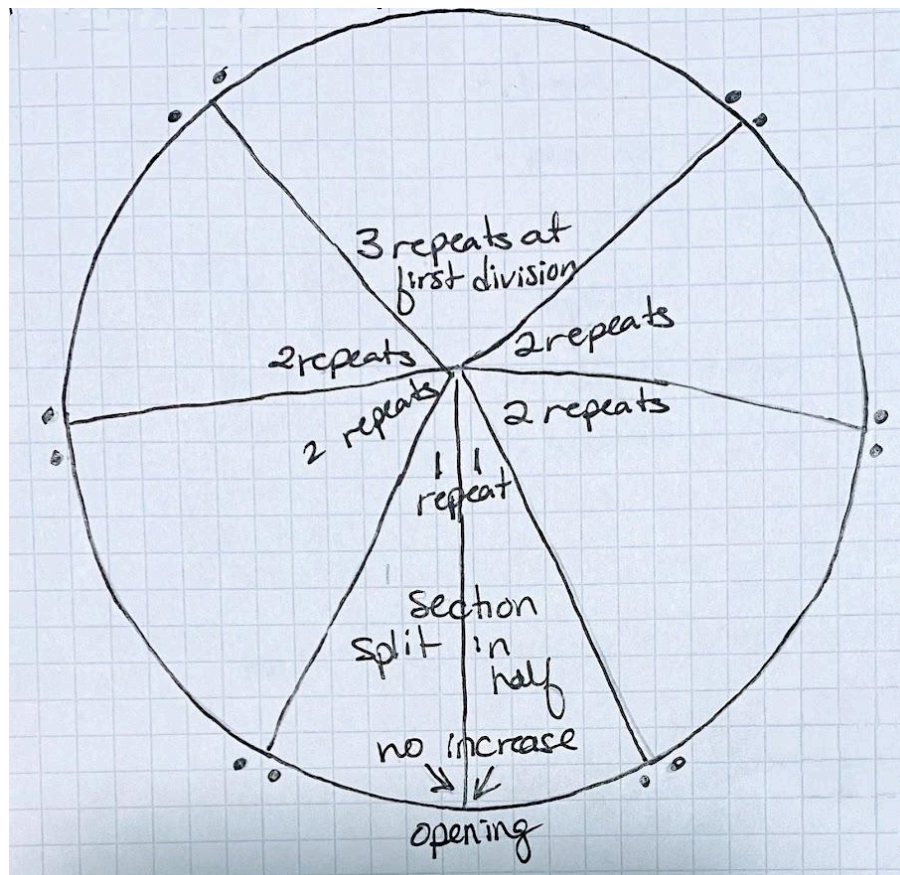 3 repeats at
first division
2 repeats
2 repeats
2 repeats
2 repeats
1 1
repeat
Section
split in
half
no increase
opening